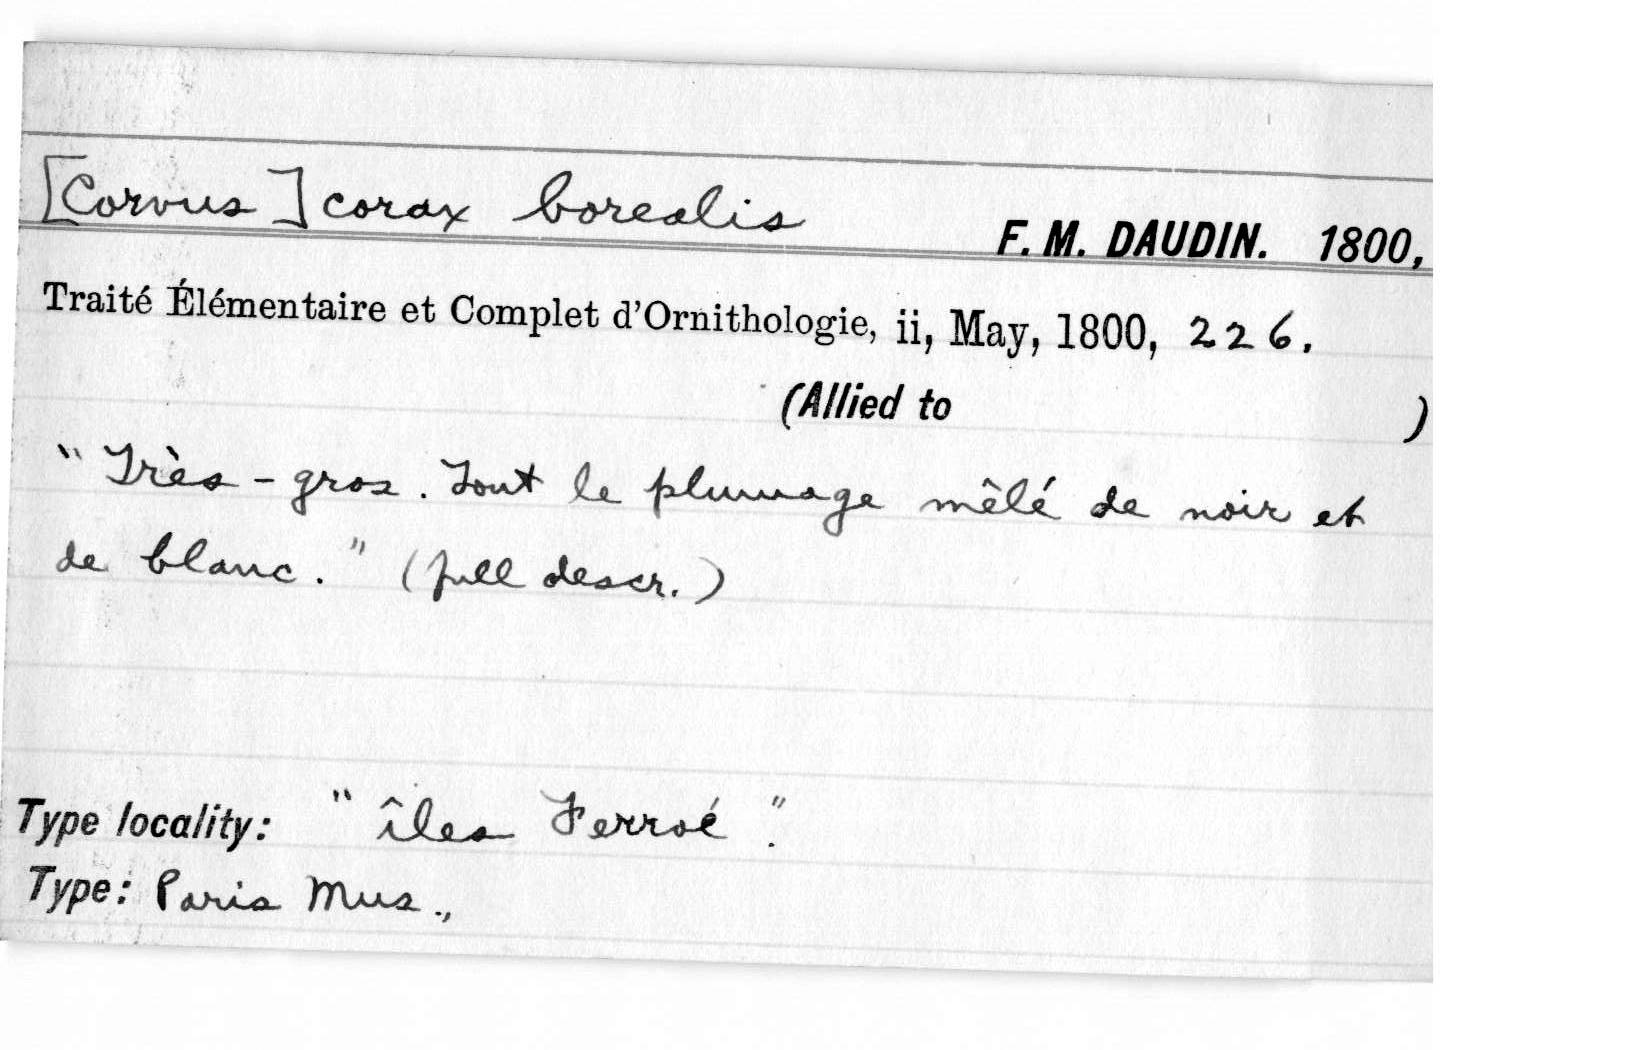 [Corvus] corax borealis F. M. DAUDIN. 1800,
Traité Élémentaire et Complet d'Ornithologie, ii, May, 1800, 226.
(Allied to )
"Très-gros. Tout le plumage mêlé de noir et
de blanc." (full descr.)
Type locality: "îles Ferroé".
Type: Paris Mus.,